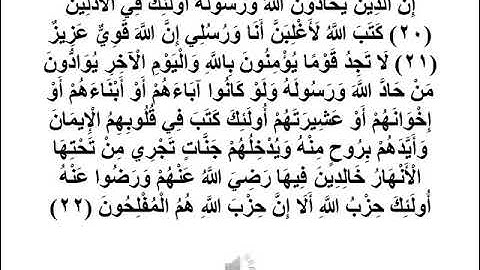 إِنَّ الَّذِينَ يُحَادُّونَ اللَّهَ وَرَسُولَهُ أُولَئِكَ فِي الْأَذَلِّينَ
(٢٠) كَتَبَ اللَّهُ لَأَغْلِبَنَّ أَنَا وَرُسُلِي إِنَّ اللَّهَ قَوِيٌّ عَزِيزٌ
(٢١) لَا تَجِدُ قَوْمًا يُؤْمِنُونَ بِاللَّهِ وَالْيَوْمِ الْآخِرِ يُوَادُّونَ
مَنْ حَادَّ اللَّهَ وَرَسُولَهُ وَلَوْ كَانُوا آبَاءَهُمْ أَوْ أَبْنَاءَهُمْ أَوْ
إِخْوَانَهُمْ أَوْ عَشِيرَتَهُمْ أُولَئِكَ كَتَبَ فِي قُلُوبِهِمُ الْإِيمَانَ
وَأَيَّدَهُمْ بِرُوحٍ مِنْهُ وَيُدْخِلُهُمْ جَنَّاتٍ تَجْرِي مِنْ تَحْتِهَا
الْأَنْهَارُ خَالِدِينَ فِيهَا رَضِيَ اللَّهُ عَنْهُمْ وَرَضُوا عَنْهُ
أُولَئِكَ حِزْبُ اللَّهِ أَلَا إِنَّ حِزْبَ اللَّهِ هُمُ الْمُفْلِحُونَ (٢٢)